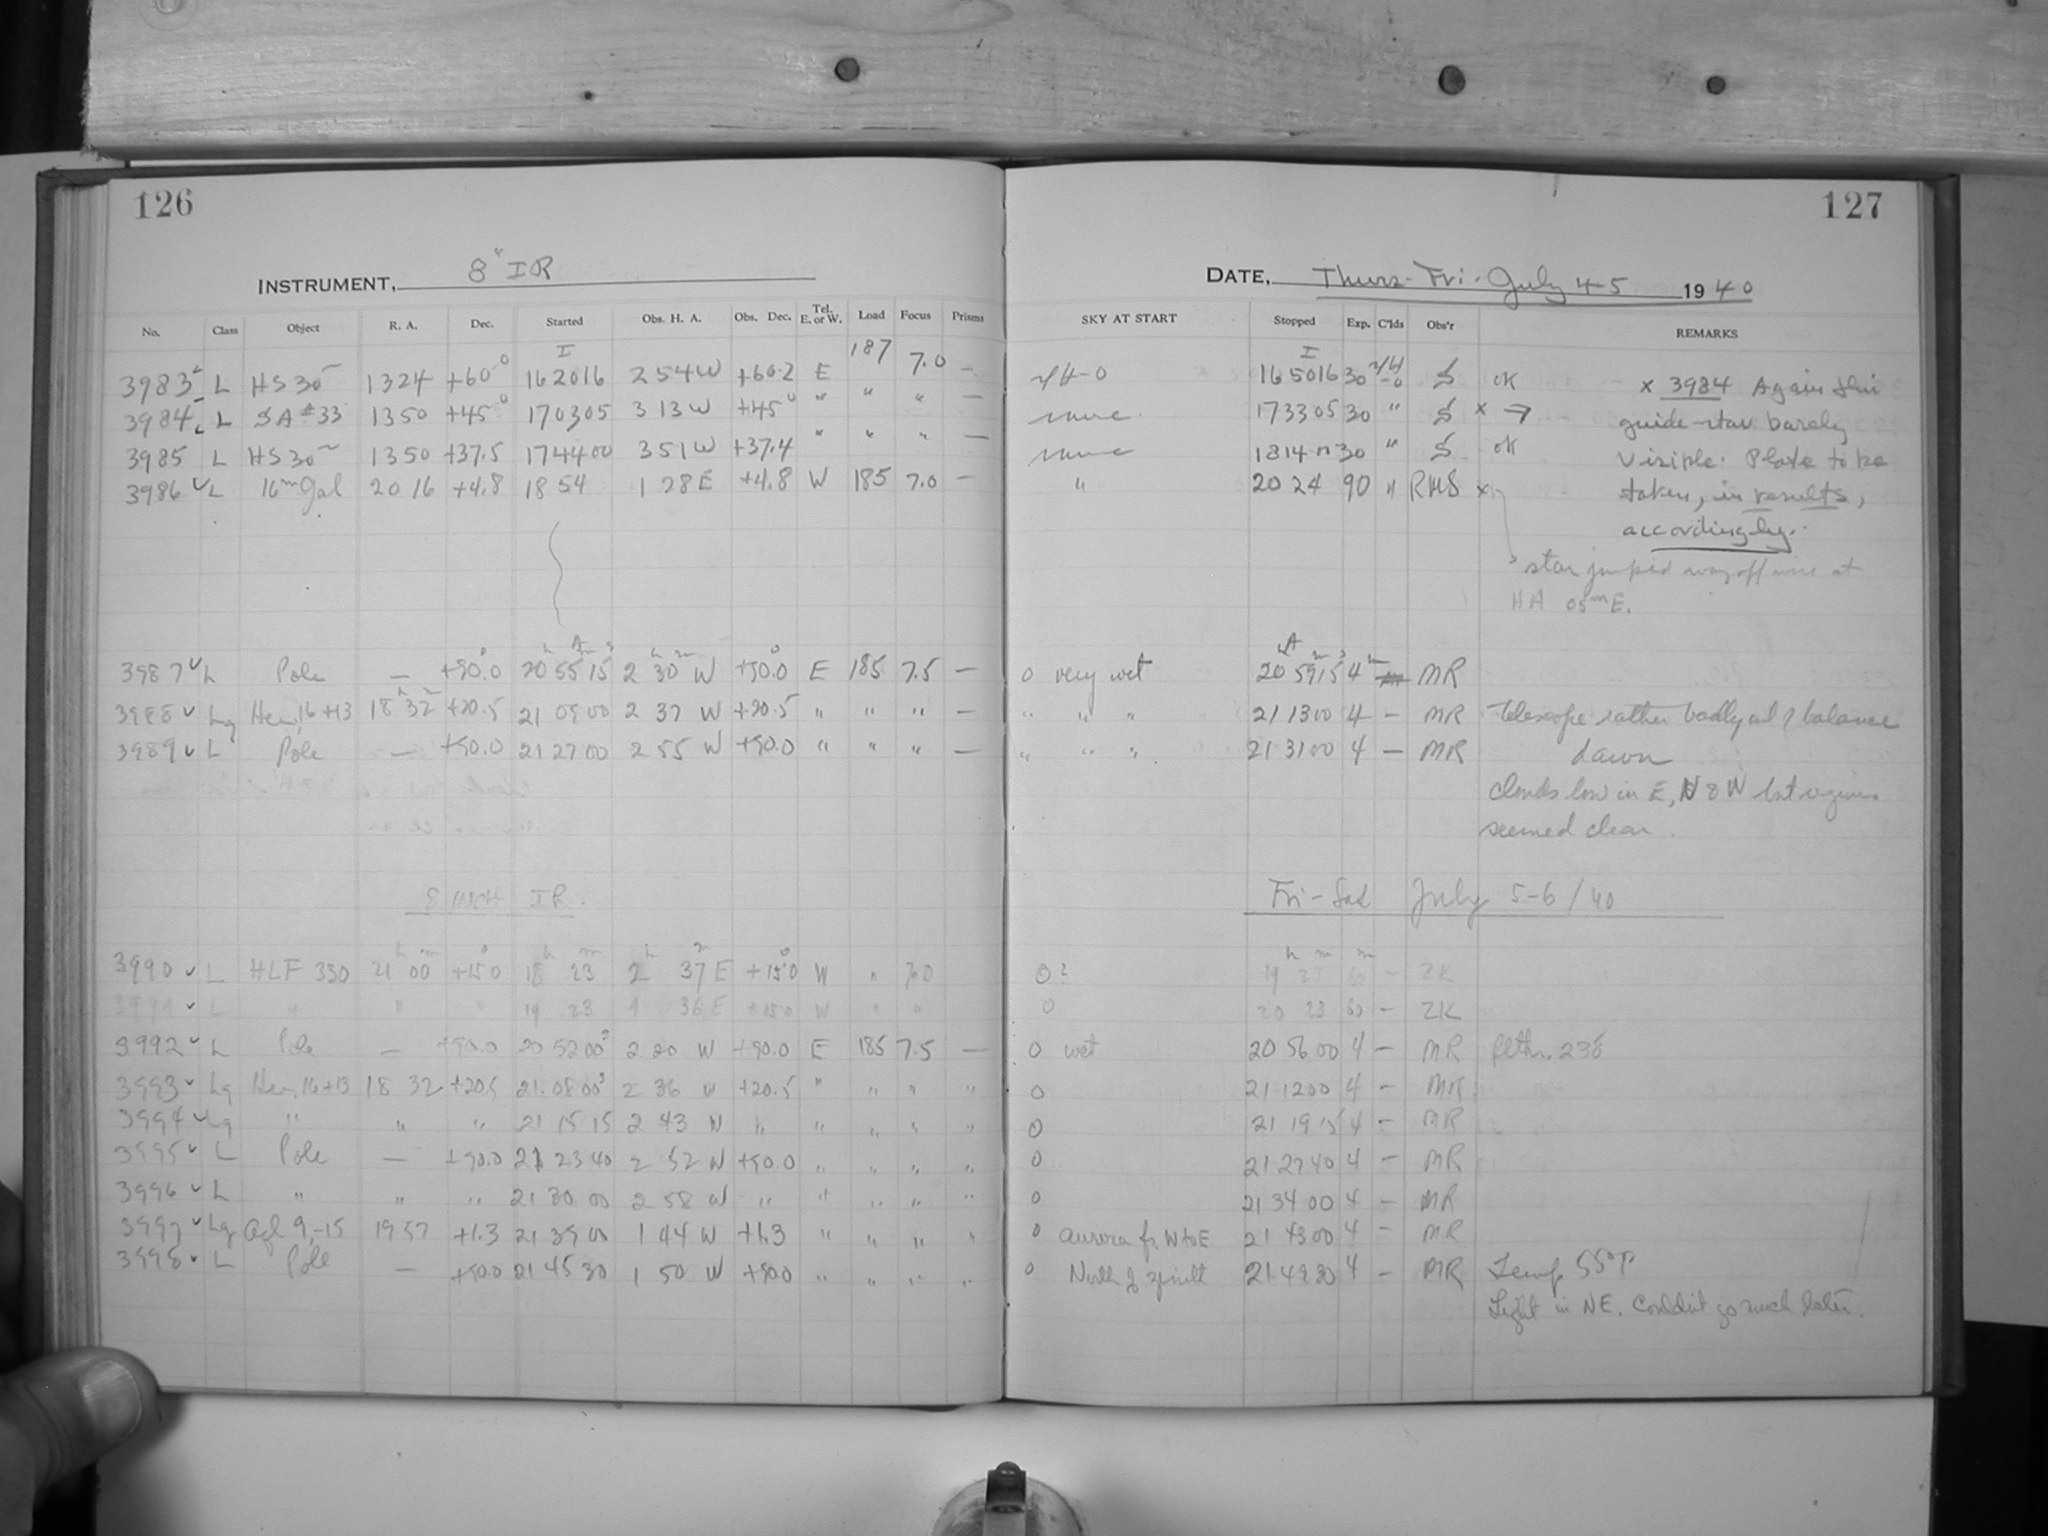 126
127
INSTRUMENT, 8" IR
DATE, Thurs-Fri. July 4-5 1940
No. Class Object R. A. Dec. Started Obs. H. A. Obs. Dec. Tel. E. or W. Load Focus Prisms SKY AT START Stopped Exp. C'lds Obs'r REMARKS
I I
3983 L HS30 1324 +60° 162016 2 54 W +60.2 E 187 7.0 — 165016 30 S OK x 3984 Again this
3984 L SA #33 1350 +45° 170305 3 13 W +45° " " " — same 173305 30 " S x → guide-star barely
3985 L HS30 1350 +37.5 174400 3 51 W +37.4 " " " — same 1814 30 " S OK visible. Plate to be
3986 L 16m Gal 20 16 +4.8 18 54 1 28 E +4.8 W 185 7.0 — " 20 24 90 " RHS x taken, in results,
accordingly.
star jumped way off wire at
HA 05m E.
3987 L Pole — +90.0 20 55 15 2 30 W +90.0 E 185 7.5 — 0 very wet 20 59 15 4 MR
3988 Lg Her, 16+13 18 32 +20.5 21 09 00 2 37 W +20.5 " " " — " " " 21 13 00 4 — MR Telescope rather badly out of balance
3989 L Pole — +90.0 21 27 00 2 55 W +90.0 " " " — " " " 21 31 00 4 — MR dawn
clouds low in E, N & W but regions
seemed clear.
8 INCH IR. Fri-Sat July 5-6/40
3990 L HLF 330 21h 00m +15°0 18h 23m 2h 37m E +15°0 W " 7.0 0? 19h 23m 60m — ZK
3991 L " " " 19 23 1 36 E +15.0 W " " 0 20 23 60 — ZK
3992 L Pole — +90.0 20 52 00 2 20 W +90.0 E 185 7.5 — 0 wet 20 56 00 4 — MR
3993 Lg Her, 16+13 18 32 +20.5 21 08 00 2 36 W +20.5 " " " " 0 21 12 00 4 — MR
3994 Lg " " " 21 15 15 2 43 W " " " " " 0 21 19 15 4 — MR
3995 L Pole — +90.0 21 23 40 2 52 W +90.0 " " " " 0 21 27 40 4 — MR
3996 L " " " 21 30 00 2 58 W " " " " " 0 21 34 00 4 — MR
3997 Lg Aql 9,-15 19 57 +1.3 21 39 00 1 44 W +1.3 " " " " 0 aurora fr. W to E 21 43 00 4 — MR
3998 L Pole — +90.0 21 45 30 1 50 W +90.0 " " " " 0 North of zenith 21 49 30 4 — MR Temp 55°F
Light in NE. Couldn't go much later.